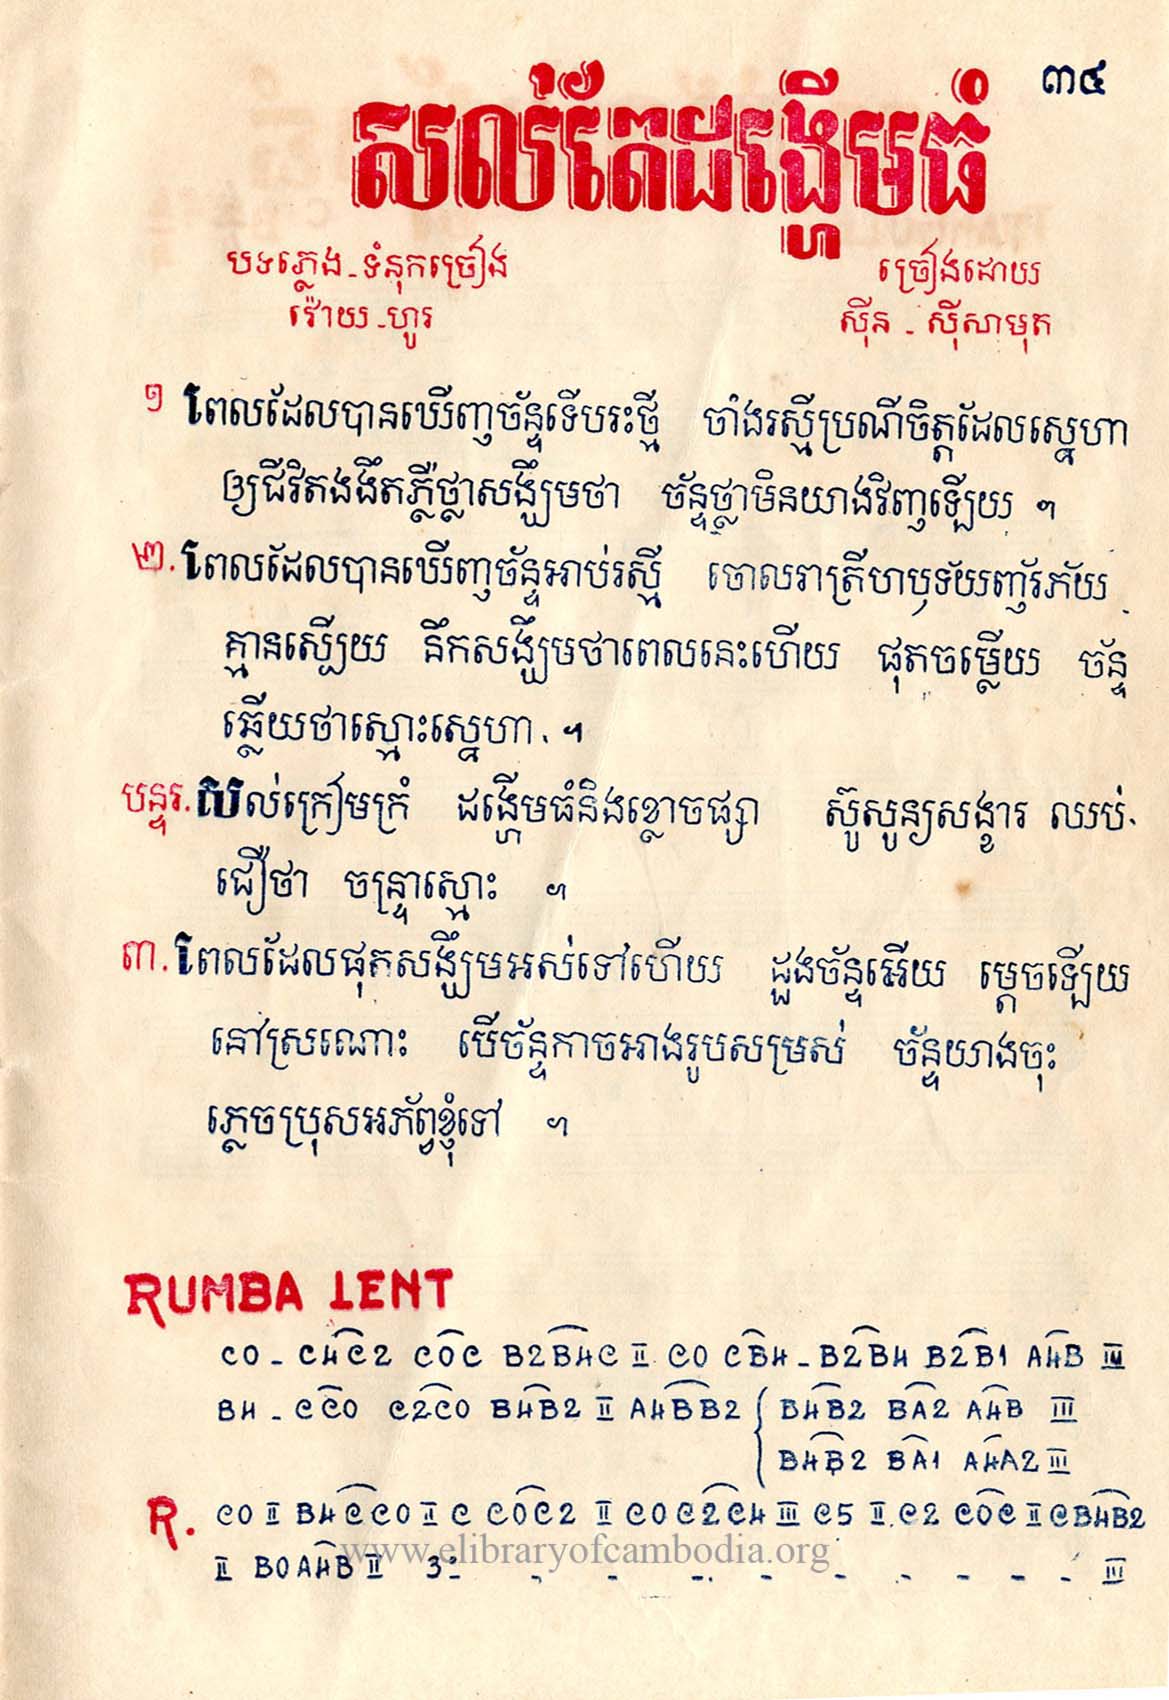 ៣៤
សល់តែដង្ហើមធំ
បទភ្លេង - ទំនុកច្រៀង
វ៉ោយ - ហូរ
ច្រៀងដោយ
ស៊ីន - ស៊ីសាមុត
១ ពេលដែលបានឃើញច័ន្ទទើបរះថ្មី ចាំងរស្មីប្រណីចិត្តដែលស្នេហា
ឲ្យជីវិតងងឹតភ្លឺថ្លាសង្ឃឹមថា ច័ន្ទថ្លាមិនយាងវិញឡើយ ។
២. ពេលដែលបានឃើញច័ន្ទអាប់រស្មី ចោលរាត្រីហឫទ័យញ័រភ័យ
គ្មានស្បើយ នឹកសង្ឃឹមថាពេលនេះហើយ ផុតចម្លើយ ច័ន្ទ
ឆ្លើយថាស្មោះស្នេហា. ។
បន្ទរ. សល់ក្រៀមក្រំ ដង្ហើមធំនិងខ្លោចផ្សា ស៊ូសូន្យសង្ខារ ឈប់
ជឿថា ចន្ទ្រាស្មោះ ។
៣. ពេលដែលផុតសង្ឃឹមអស់ទៅហើយ ដួងច័ន្ទអើយ ម្ដេចឡើយ
នៅស្រណោះ បើច័ន្ទកាចអាងរូបសម្រស់ ច័ន្ទយាងចុះ
ភ្លេចប្រុសអភ័ព្វខ្ញុំទៅ ។
RUMBA LENT
CO - C4C2 COC B2B4C II CO CB4 - B2B4 B2B1 A4B III
B4 - CCO C2CO B4B2 II A4BB2 { B4B2 BA2 A4B III
B4B2 BA1 A4A2 III
R. CO II B4CCO II C COC2 II CO C2C4 III C5 II C2 COC II CB4B2
II BOA4B II 3: - - - - - - - - - III
www.elibraryofcambodia.org